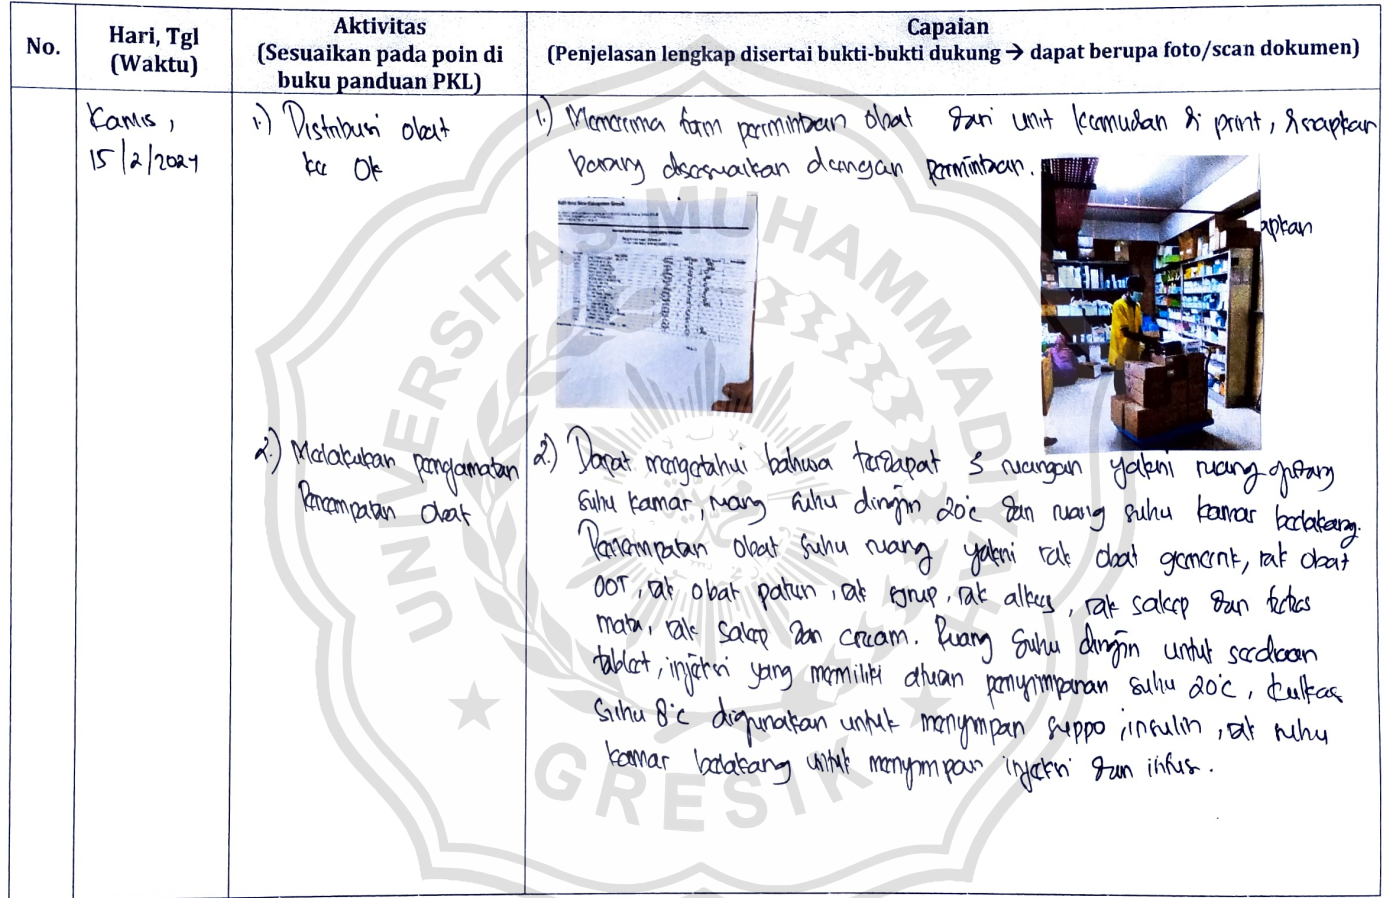 No.
Hari, Tgl
(Waktu)
Aktivitas
(Sesuaikan pada poin di
buku panduan PKL)
Capaian
(Penjelasan lengkap disertai bukti-bukti dukung → dapat berupa foto/scan dokumen)
Kamis,
15/2/2024
1.) Distribusi obat
ke Ok
1.) Menerima form permintaan obat dari unit kemudian di print, disiapkan
barang disesuaikan dengan permintaan.
apkan
2.) Melakukan pengamatan
Penempatan obat
2.) Dapat mengetahui bahwa terdapat 3 ruangan yakni ruang
suhu kamar, ruang suhu dingin 20°C dan ruang suhu kamar belakang.
Penempatan obat suhu ruang yakni rak obat generik, rak obat
OOT, rak obat paten, rak syrup, rak alkes, rak salep dan tetes
mata, rak salep dan cream. Ruang suhu dingin untuk sediaan
tablet, injeksi yang memiliki aturan penyimpanan suhu 20°C, kulkas
suhu 8°C digunakan untuk menyimpan suppo, insulin, rak suhu
kamar belakang untuk menyimpan injeksi dan infus.
UNIVERSITAS MUHAMMADIYAH
GRESIK